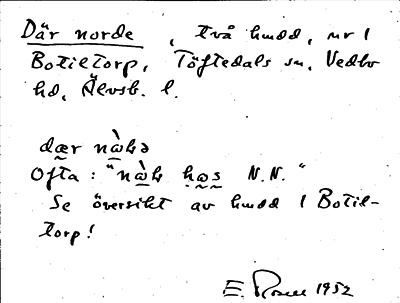 Där norde, två hmdd, nr 1
Botiltorp, Töftedals sn, Vedbo
hd, Älvsb. l.
dær nὼhə
Ofta: "nὼh hωs N.N."
Se översikt av hmdd i Botil-
torp!
E. Rosell 1952